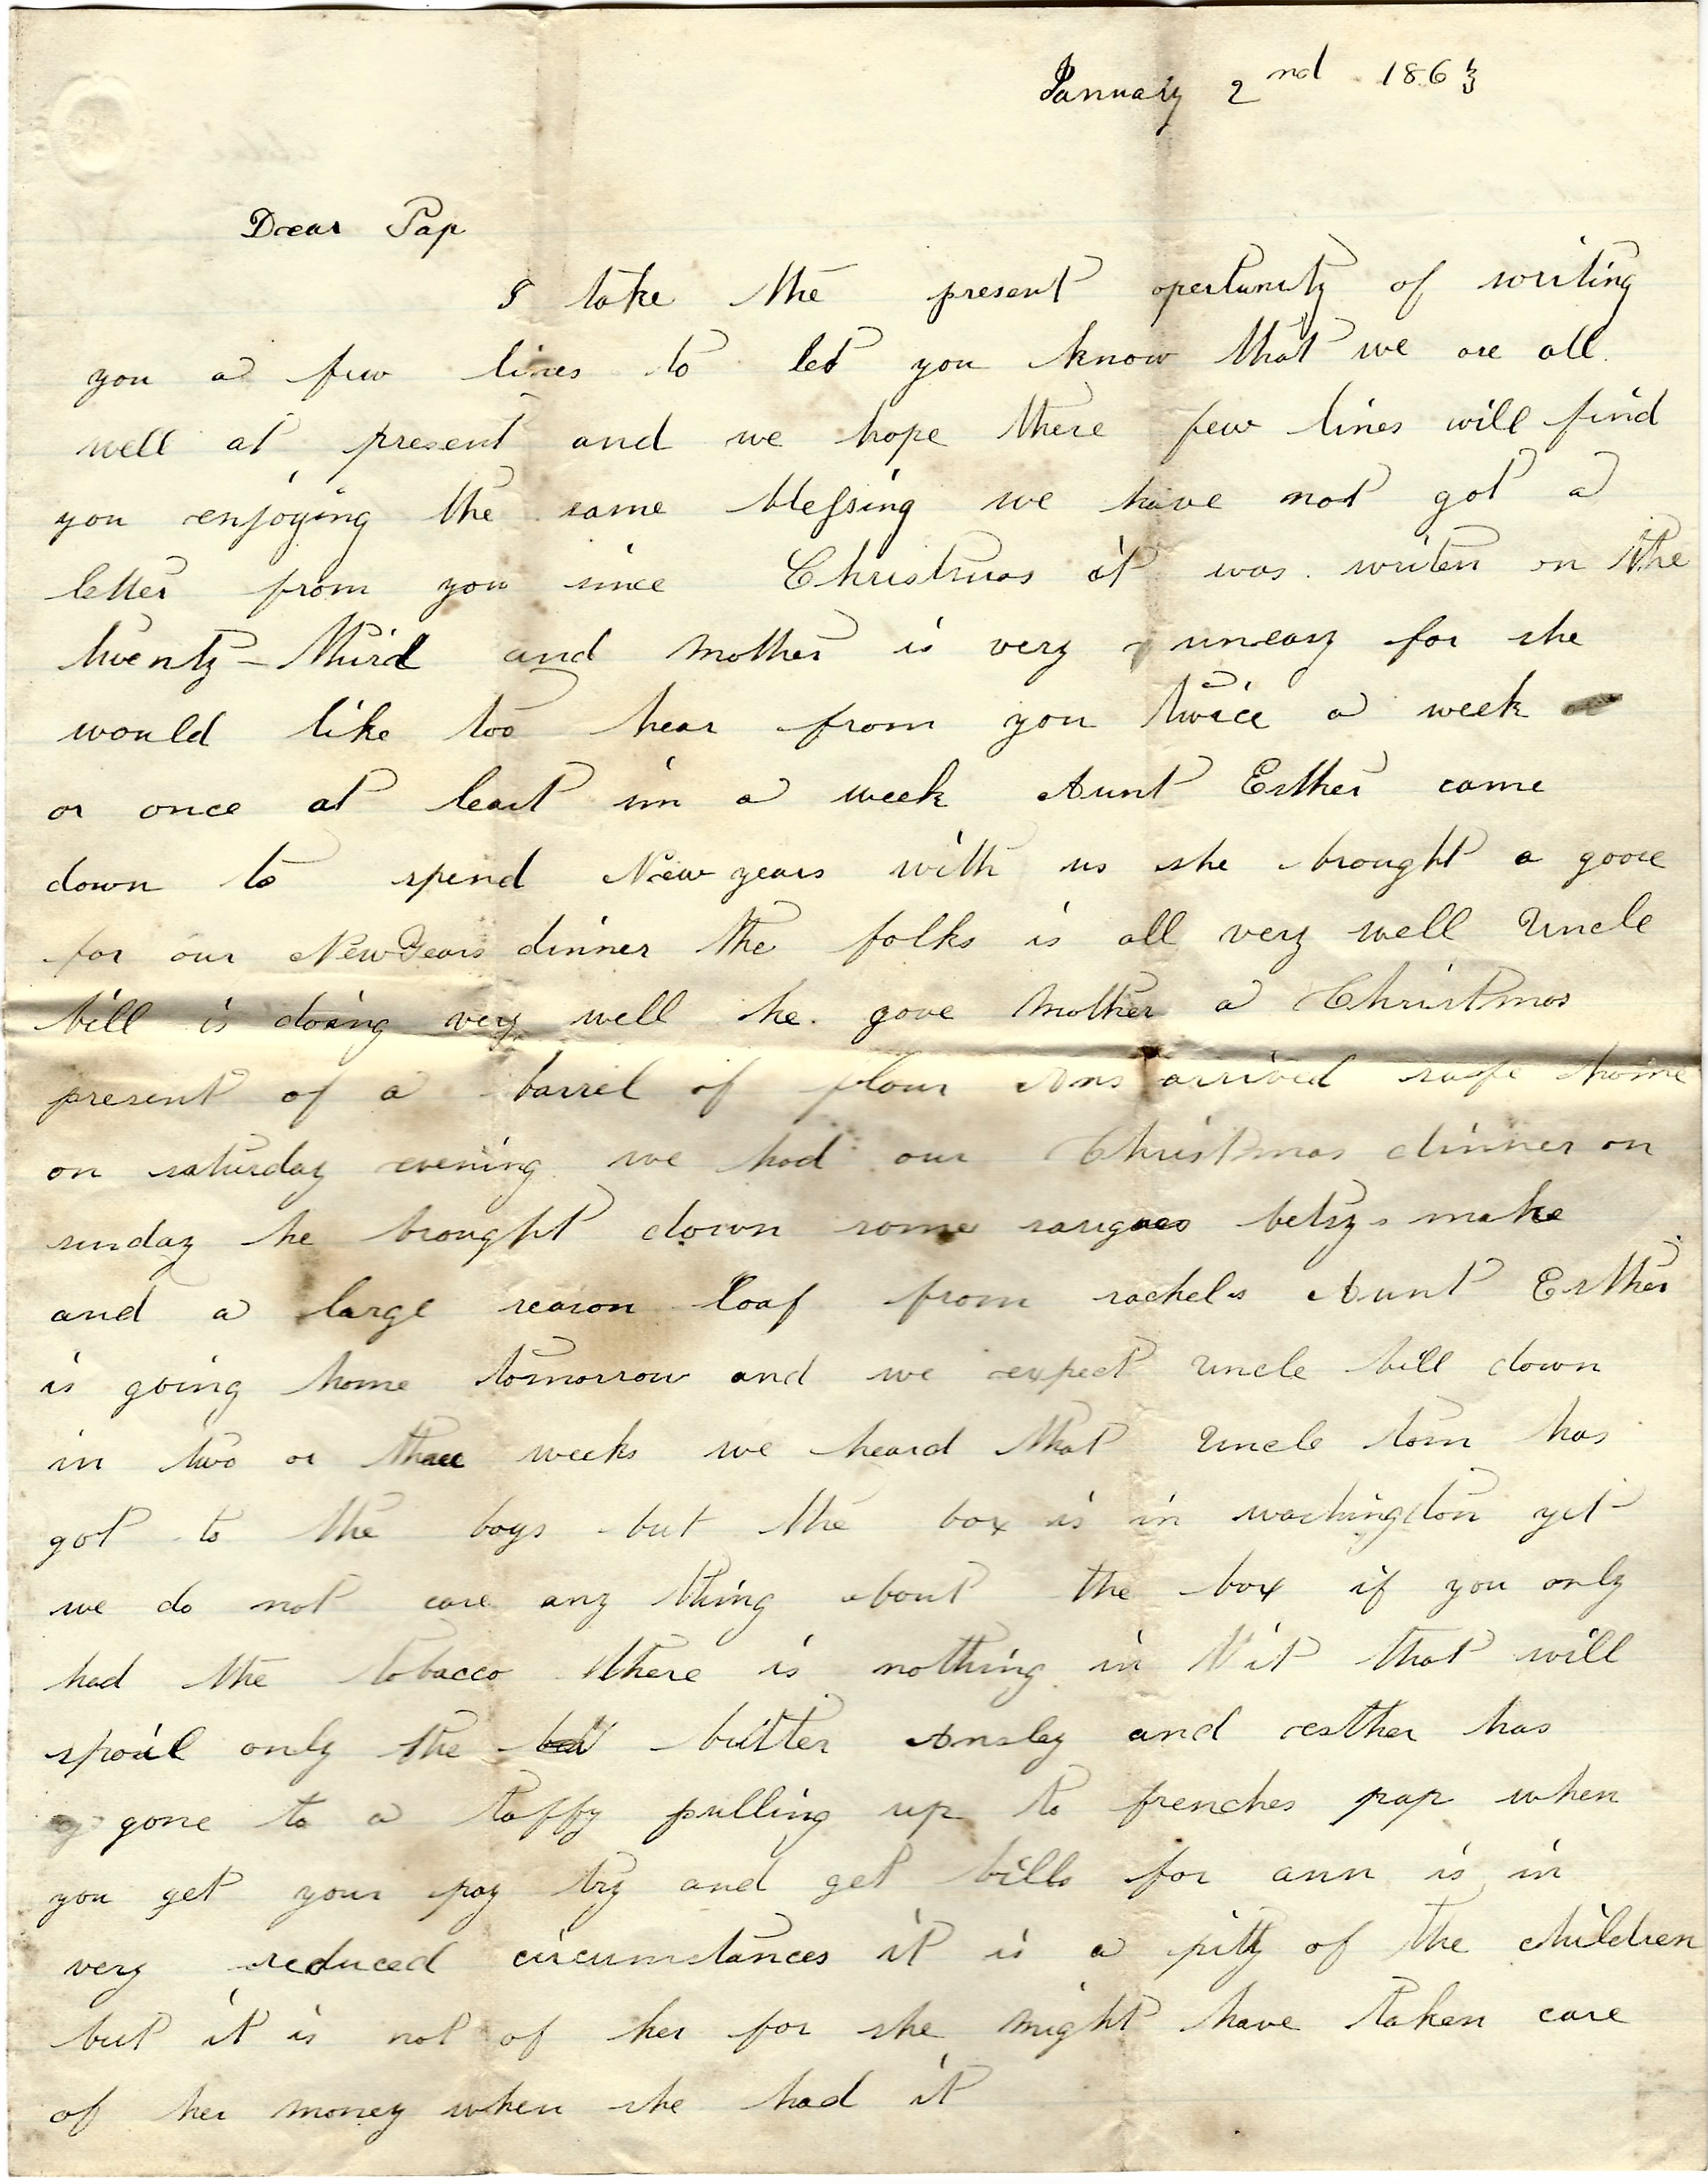 January 2nd 1863
Dear Pap
I take the present opertunity of writing
you a few lines to let you know that we are all
well at present and we hope these few lines will find
you enjoying the same blessing we have not got a
letter from you since Christmas it was writen on the
twenty-third and mother is very uneasy for she
would like too hear from you twice a week
or once at least in a week Aunt Esther came
down to spend New years with us she brought a goose
for our New Years dinner the folks is all very well Uncle
bill is doing very well he gave Mother a Christmas
present of a barrel of flour Ans arrived safe home
on saturday evening we had our Christmas dinner on
sunday he brought down some betsys make
and a large reason loaf from rachels Aunt Esther
is going home tomorrow and we expect Uncle bill down
in two or three weeks we heard that Uncle tom has
got to the boys but the box is in washington yet
we do not care any thing about the box if you only
had the tobacco there is nothing in it that will
spoil only the butter Ansley and esther has
gone to a taffy pulling up to frenches pap when
you get your pay try and get bills for ann is in
very reduced circumstances it is a pitty of the children
but it is not of her for she might have taken care
of her money when she had it